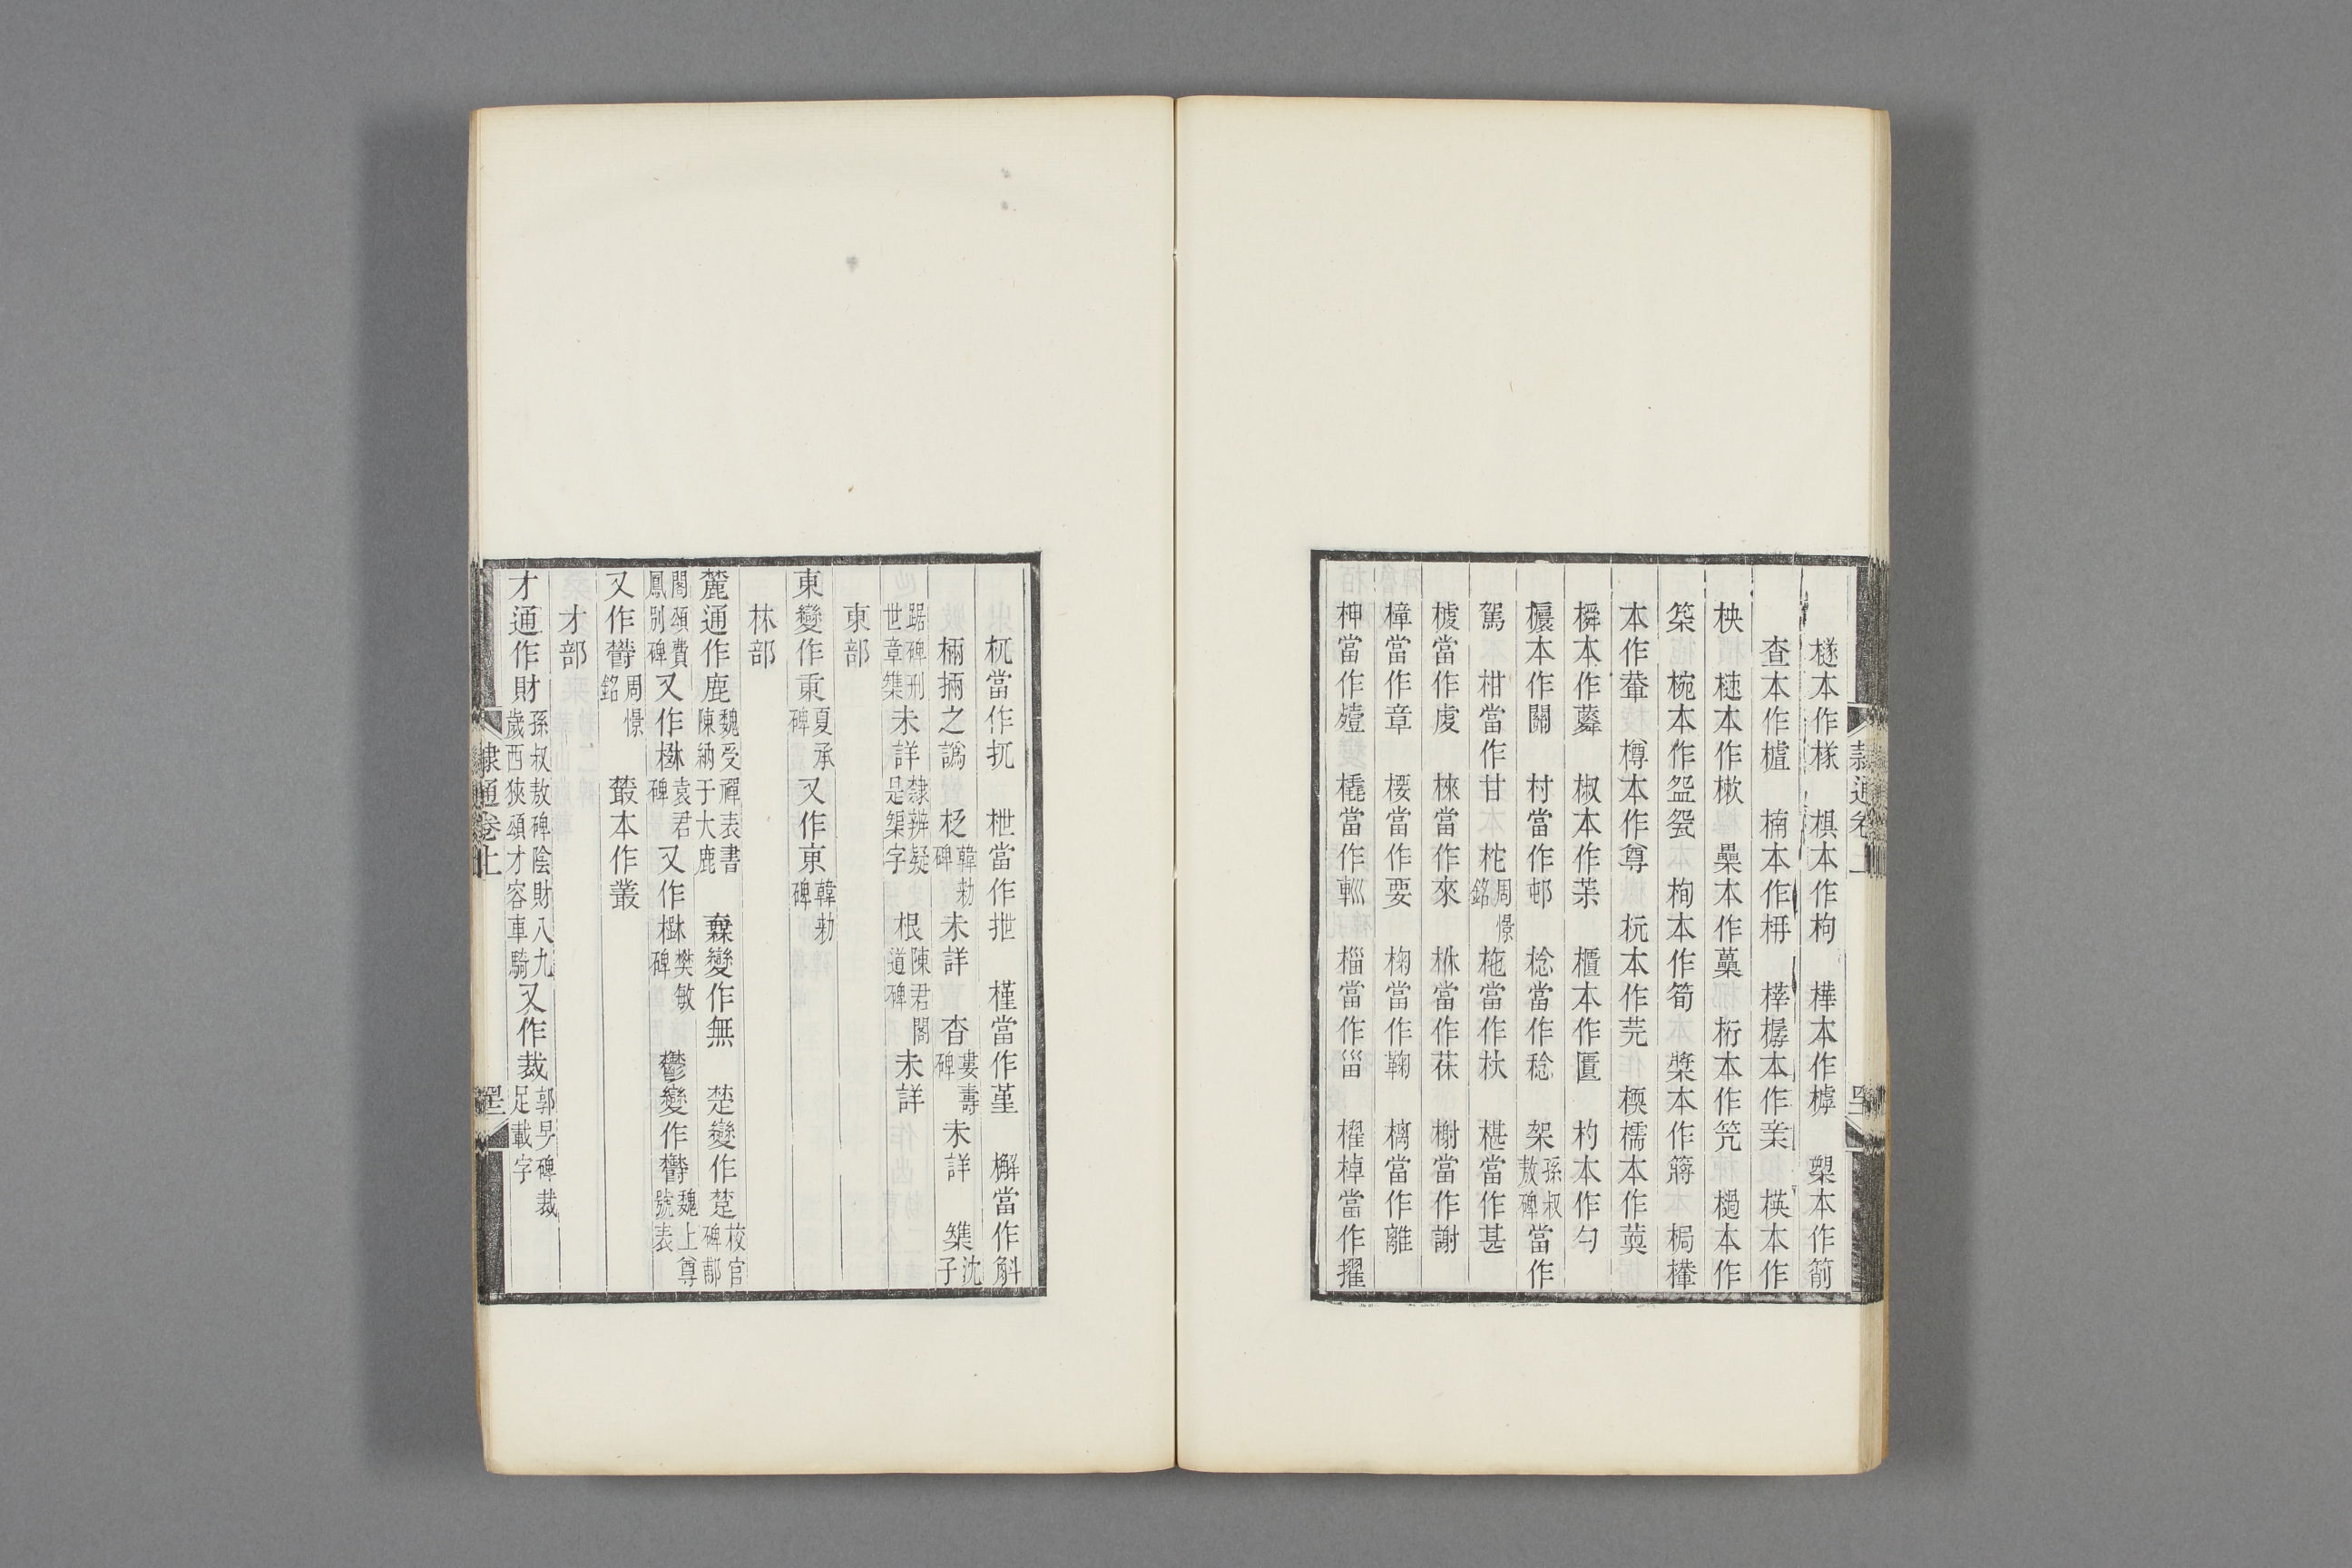 檖本作㯌　椇本作枸　樺本作樗　槼本作箭
查本作樝　楠本作枏　榟樼本作亲　楧本作
柍　樾本作樕　櫐本作蘽　桁本作笐　檛本作
築　椀本作盌㼝　栒本作筍　槳本作篺　梮檋
本作輂　樽本作尊　杬本作芫　檽本作䓴
橓本作蕣　椒本作茮　櫃本作匱　杓本作勺
櫰本作關　村當作邨　棯當作稔　架孫叔敖碑當作
駕　柑當作甘　柁周憬銘　柂當作杕　椹當作甚
㯉當作虔　梾當作來　㭐當作茠　榭當作謝
樟當作章　楆當作要　椈當作鞠　樆當作離
柛當作𣩁　橇當作𨋢　椔當作甾　櫂棹當作擢
杌當作扤　枻當作抴　槿當作堇　檞當作斛
㭃掚之譌　柉韓勑碑未詳　杏婁壽碑未詳　㮮沈子
琚碑刑世章㮮未詳隸辨疑是榘字　根陳君閣道碑未詳
東部
東變作東夏承碑又作東韓勑碑
林部
麓通作鹿魏受禪表書陳納于大鹿　森變作無　楚變作楚校官碑郙
閣頌費鳳別碑又作楙袁君碑又作㯍樊敏碑　鬱變作欝魏上尊號表
又作欝周憬銘　菆本作叢
才部
才通作財孫叔敖碑陰財八九歲西狹頌才容車騎又作裁郭旻碑裁足載字
隸通卷上
隸通卷上